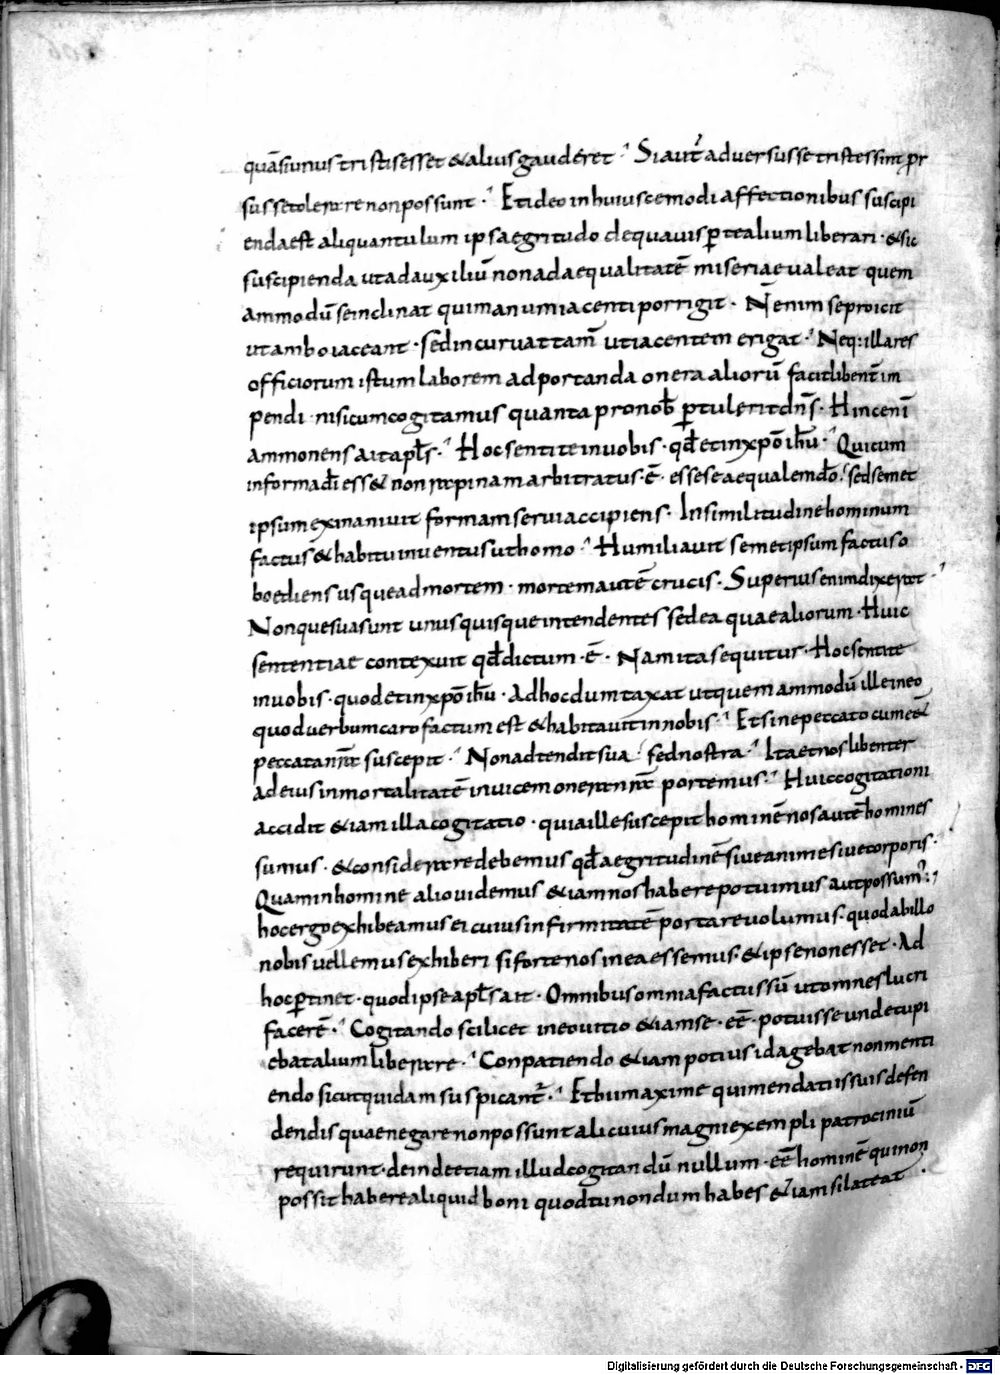 quāsi unus tristis esset & alius gauderet · Si aut̄ adversus se tristes sint p̄r
sus se tolerare non possunt · Et ideo in huiuscemodi affectionibus suscipi
enda est aliquantulum ipsa egritudo de qua vis ꝑ te alium liberari · & sic
suscipienda ut ad auxiliū non ad aequalitatē miseriae valeat quem
ammodū se inclinat qui manum iacenti porrigit · N̄ enim se proicit
ut ambo iaceant · sed incurvat tam̄ ut iacentem erigat · Neq: illa res
officiorum istum laborem ad portanda onera aliorū facit libent̄ im
pendi · nisi cum cogitamus quanta pro nob̄ ꝑtulerit dn̄s · Hinc enī
ammonens ait apl̄s · Hoc sentite in vobis · qd̄ et in xpō ihū · Qui cum
in forma dī ess& non rapinam arbitratus · ē · esse se aequalem dō · sed semet
ipsum exinanivit formam servi accipiens · In similitudine hominum
factus & habitu inventus ut homo · Humiliavit semetipsum factus o
boediens usque ad mortem · mortem autē crucis · Superius enim dixerat ·
Non que sua sunt unusquisque intendentes sed ea quae aliorum · Huic
sententiae contexuit qd̄ dictum · ē · Nam ita sequitur · Hoc sentite
in vobis · quod et in xpō ihū · Ad hoc dumtaxat ut quem ammodū ille in eo
quod verbum caro factum est & habitavit in nobis · Et sine peccato cum ee&
peccata nr̄a suscepit · Non adtendit sua · sed nostra · Ita et nos libenter
ad eius inmortalitatē invicem onera nr̄a portemus · Huic cogitationi
accidit & iam illa cogitatio · quia ille suscepit hominē nos autē homines
sumus · & considerare debemus qd̄ aegritudinē sive anime sive corporis ·
Quam in homine alio videmus & iam nos habere potuimus aut possum̄ ·
hoc ergo exhibeamus ei cuius infirmitatē portare volumus · quod ab illo
nobis vellemus exhiberi si forte nos in ea essemus · & ipse non esset · Ad
hoc ꝑtinet · quod ipse apl̄s ait · Omnibus omnia factus sū ut omnes lucri
facerē · Cogitando scilicet in eo vitio & iam se · eē · potuisse unde cupi
ebat alium liberare · Conpatiendo & iam potius id agebat non menti
endo sicut quidam suspicant̄ · Et hii maxime qui mendatiis suis defen
dendis quae negare non possunt alicuius magni exempli patrociniū
requirunt · deinde etiam illud cogitandū nullum · eē hominē qui non
possit habere aliquid boni quod tu nondum habes & iam si lateat ·
Digitalisierung gefördert durch die Deutsche Forschungsgemeinschaft · DFG